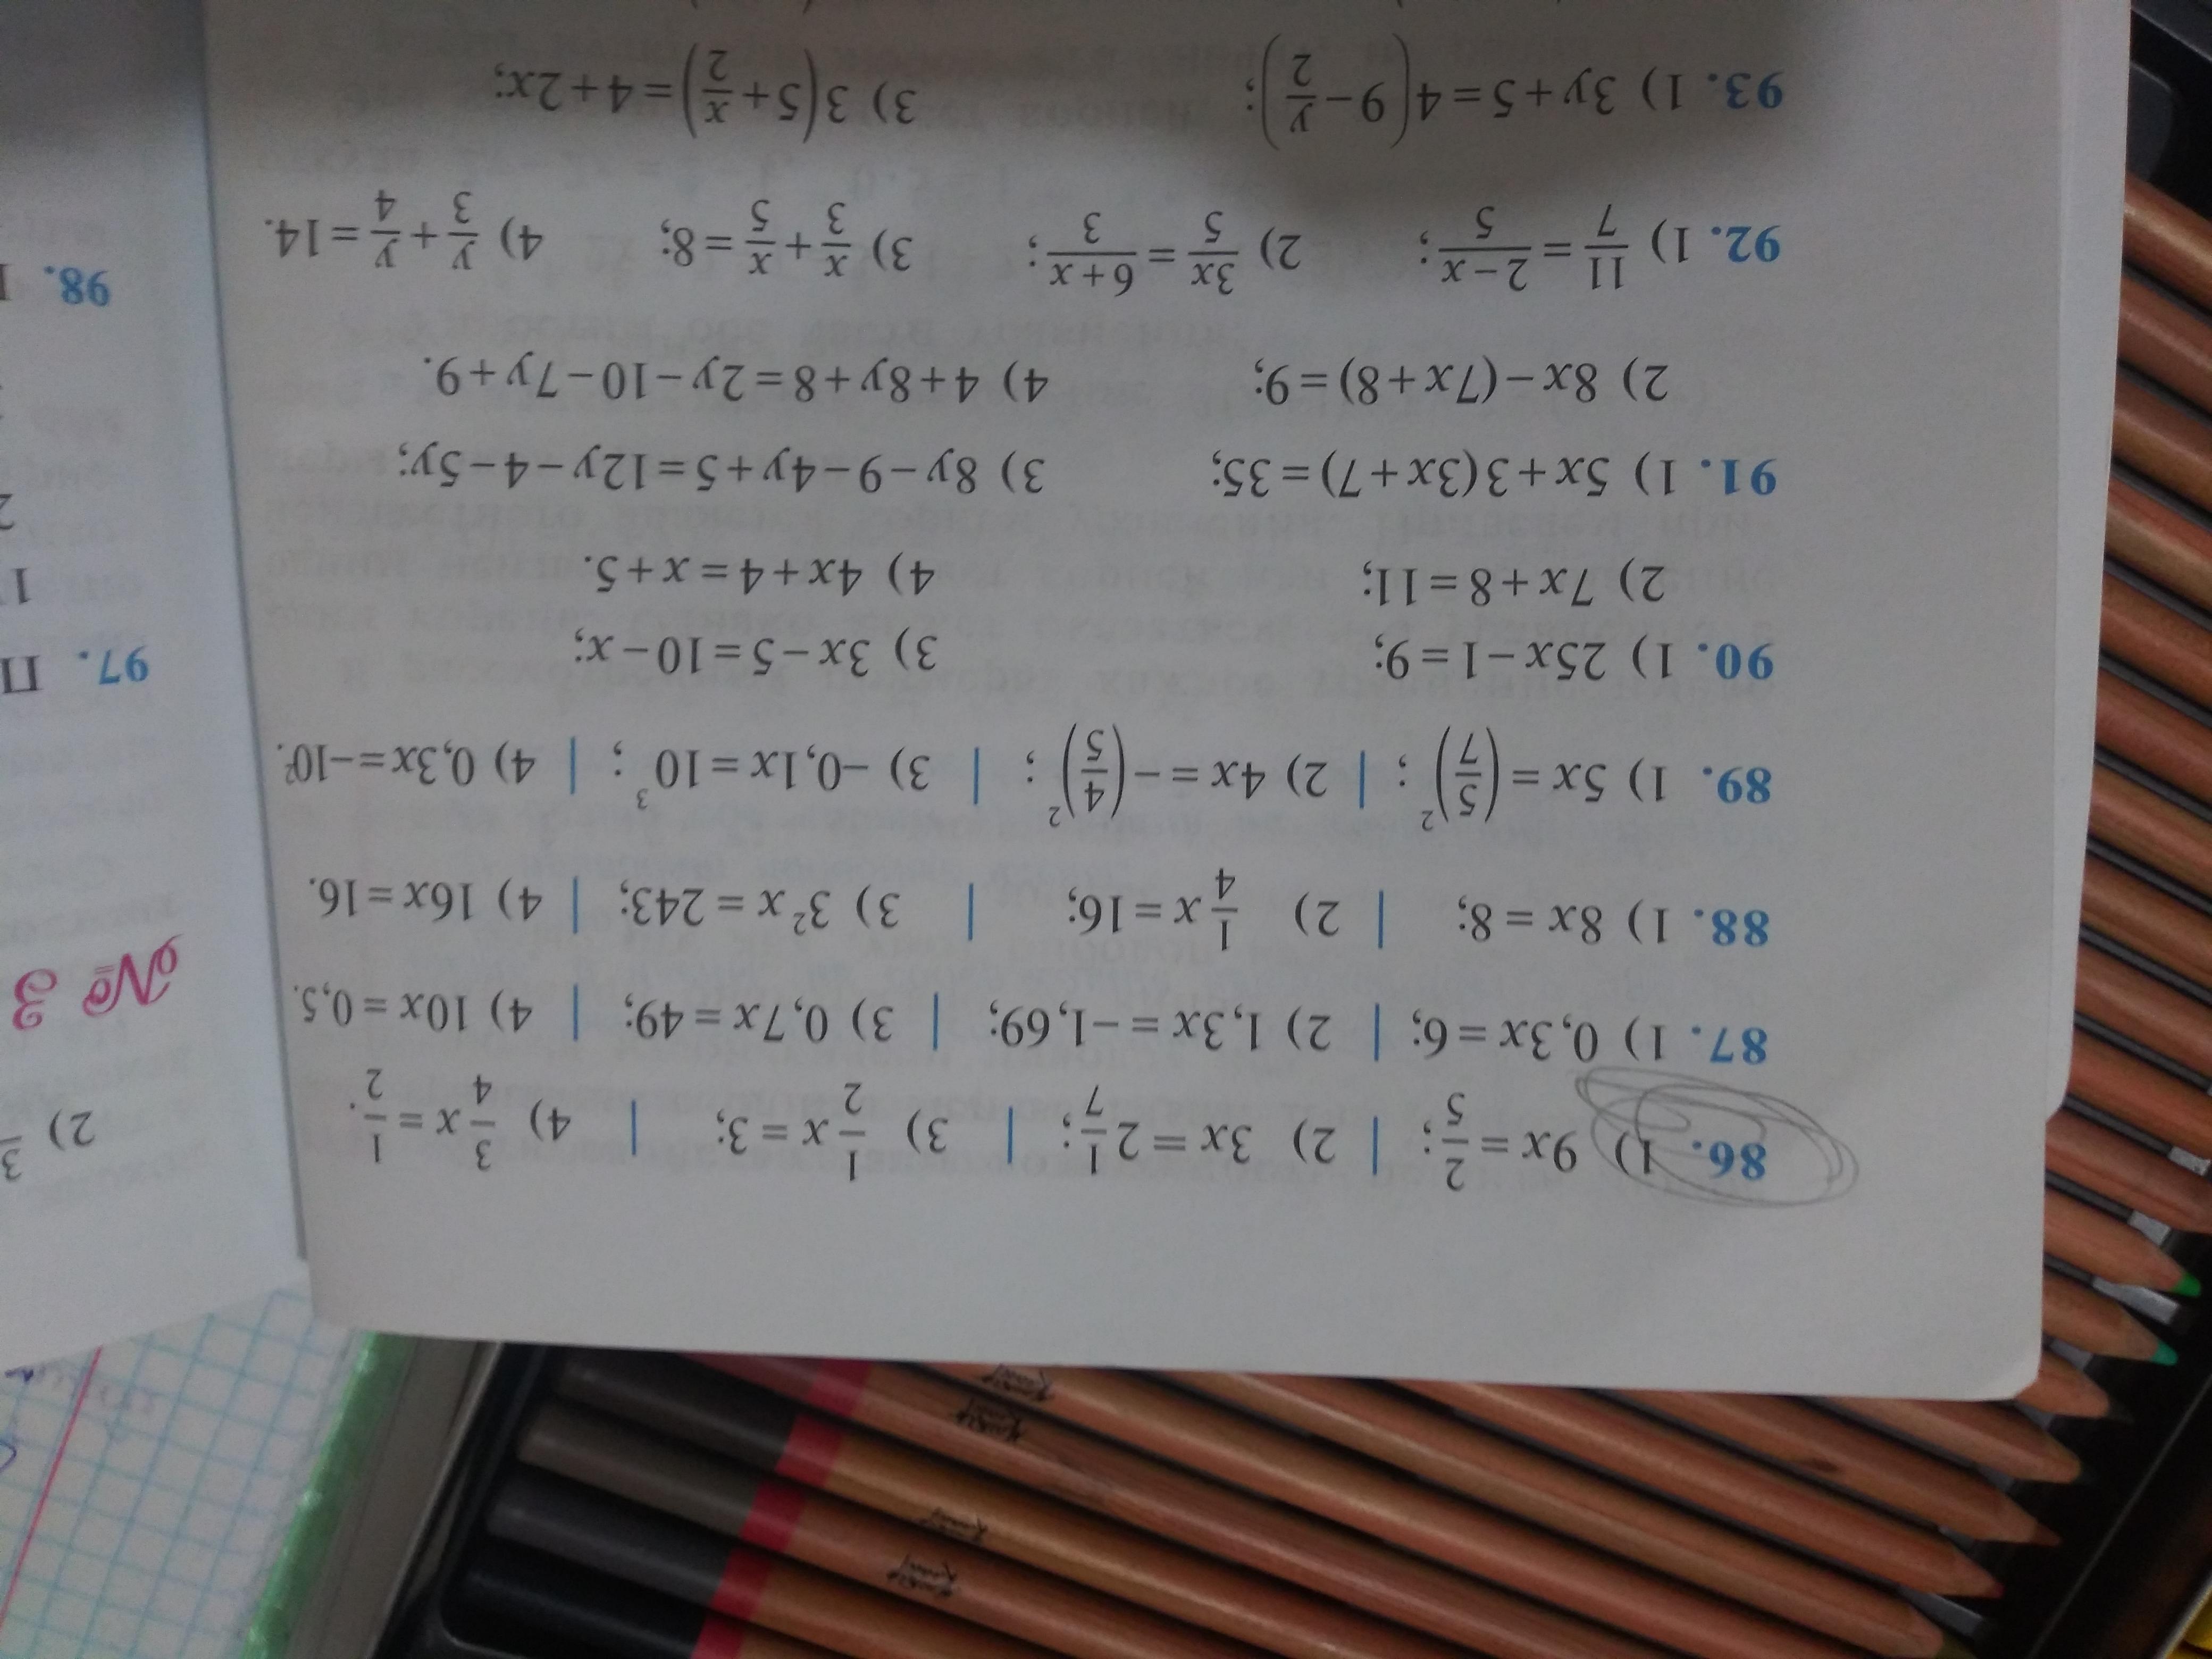 86. 1) 9x = 2/5; | 2) 3x = 2 1/7; | 3) 1/2 x = 3; | 4) 3/4 x = 1/2.
87. 1) 0,3x = 6; | 2) 1,3x = −1,69; | 3) 0,7x = 49; | 4) 10x = 0,5.
88. 1) 8x = 8; | 2) 1/4 x = 16; | 3) 3²x = 243; | 4) 16x = 16.
89. 1) 5x = (5/7)²; | 2) 4x = −(4/5)²; | 3) −0,1x = 10³; | 4) 0,3x = −10².
90. 1) 25x − 1 = 9; 3) 3x − 5 = 10 − x;
2) 7x + 8 = 11; 4) 4x + 4 = x + 5.
91. 1) 5x + 3(3x + 7) = 35; 3) 8y − 9 − 4y + 5 = 12y − 4 − 5y;
2) 8x − (7x + 8) = 9; 4) 4 + 8y + 8 = 2y − 10 − 7y + 9.
92. 1) 11/7 = (2 − x)/5; 2) 3x/5 = (6 + x)/3; 3) x/3 + x/5 = 8; 4) y/3 + y/4 = 14.
93. 1) 3y + 5 = 4(9 − y/2); 3) 3(5 + x/2) = 4 + 2x;
2) 3
№ 3
97. П
1
2
98.